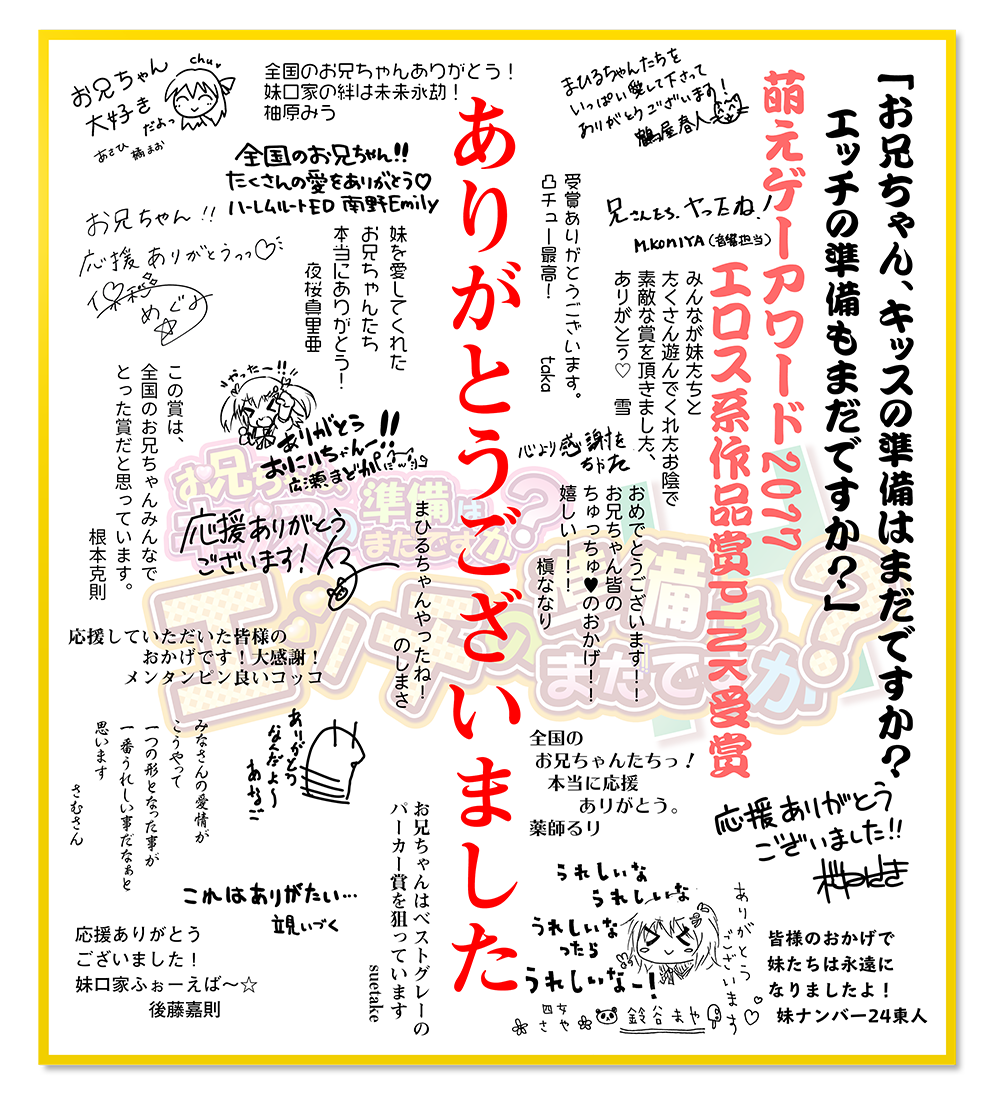 「お兄ちゃん、キッスの準備はまだですか？
エッチの準備もまだですか？」
萌えゲーアワード2017
エロス系作品賞PINK受賞
ありがとうございました
まひるちゃんたちを
いっぱい愛して下さって
ありがとうございます！
鶴屋春人
兄さんたち、ヤったね！
M.KOMIYA（音響担当）
受賞ありがとうございます。
凸チュー最高！　taka
みんなが妹たちと
たくさん遊んでくれたお陰で
素敵な賞を頂きました、
ありがとう♡　雪
心より感謝を
おめでとうございます！！
お兄ちゃん皆の
ちゅっちゅ♥のおかげ！！
嬉しいーー！
槇ななり
全国の
お兄ちゃんたちっ！
本当に応援
ありがとう。
薬師るり
応援ありがとう
ございました!!
うれしいな
うれしいな
うれしいな
ったら
うれしいなー！
ありがとう
ございます♡
四女
さや
鈴谷まや
皆様のおかげで
妹たちは永遠に
なりましたよ！
妹ナンバー24東人
お兄ちゃん
大好き
だよっ
chu♥
あさひ 橘まお
全国のお兄ちゃんありがとう！
妹口家の絆は未来永劫！
柚原みう
全国のお兄ちゃん!!
たくさんの愛をありがとう♡
ハーレムルートED 南野Emily
お兄ちゃん!!
応援ありがとうっっ♡
めぐみ
妹を愛してくれた
お兄ちゃんたち
本当にありがとう！
夜桜真里亜
この賞は、
全国のお兄ちゃんみんなで
とった賞だと思っています。
根本克則
やったー!!
ありがとう
おにいちゃんー!!
広瀬まどか
応援ありがとう
ございます！
まひるちゃんやったね！
のしまさ
お兄ちゃん、
キッスの準備は
まだですか？
エッチの準備も
まだですか？
応援していただいた皆様の
おかげです！大感謝！
メンタンピン良いコッコ
みなさんの愛情が
こうやって
一つの形となった事が
一番うれしい事だなぁと
思います
さむさん
ありがとう
なんだよ〜
あなご
これはありがたい…
親いづく
お兄ちゃんはベストグレーの
パーカー賞を狙っています
suetake
応援ありがとう
ございました！
妹口家ふぉーえば〜☆
後藤嘉則